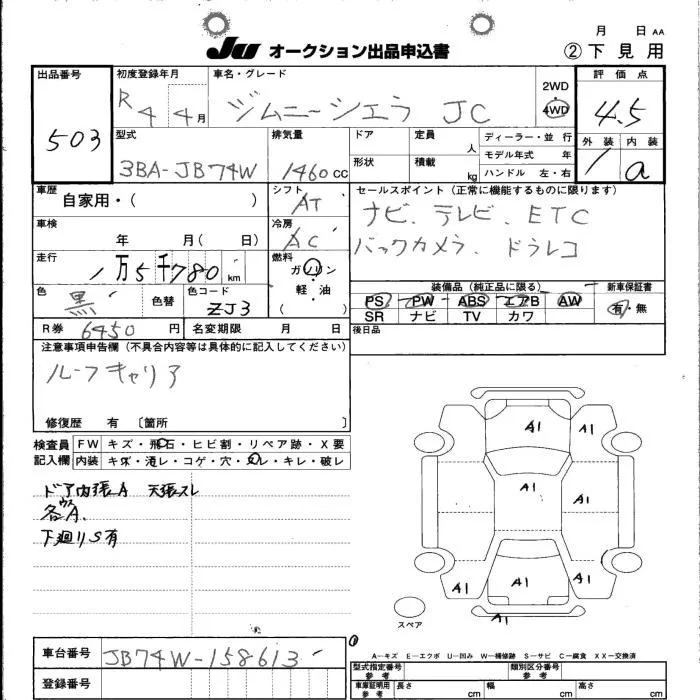 月 日 AA
JU オークション出品申込書 ②下見用
出品番号 初度登録年月 車名・グレード 2WD 4WD 評価点
503 R4 4月 ジムニーシエラ JC 4.5
型式 排気量 ドア 定員 人 ディーラー・並行 外装 内装
3BA-JB74W 1460cc 形状 積載 kg モデル年式 年 1 a
ハンドル 左・右
車歴 シフト セールスポイント(正常に機能するものに限ります)
自家用・( ) AT ナビ、テレビ、ETC
車検 冷房 バックカメラ、ドラレコ
年 月( 日) AC
走行 燃料
1万5千780km ガソリン 軽・油 ( )
装備品(純正品に限る) 新車保証書
色 黒 色替 色コード ZJ3
PS PW ABS エアB AW 有・無
SR ナビ TV カワ
R券 6450円 名変期限 月 日 後日品
注意事項申告欄(不具合内容等は具体的に記入してください)
ルーフキャリア
修復歴 有 〔箇所 〕
検査員 FW キズ・飛石・ヒビ割・リペア跡・X要
記入欄 内装 キズ・汚レ・コゲ・穴・スレ・キレ・破レ
ドア内張A 天張スレ
各ウスA.
下廻りS有
A1
A1
A1
A1
A1
A1
A1
A1
A1
スペア
A―キズ E―エクボ U―凹み W―補修跡 S―サビ C―腐食 XX―交換済
車台番号 JB74W-158613
登録番号
型式指定番号 参考 類別区分番号 参考
車庫証明用 参考 長さ cm 幅 cm 高さ cm